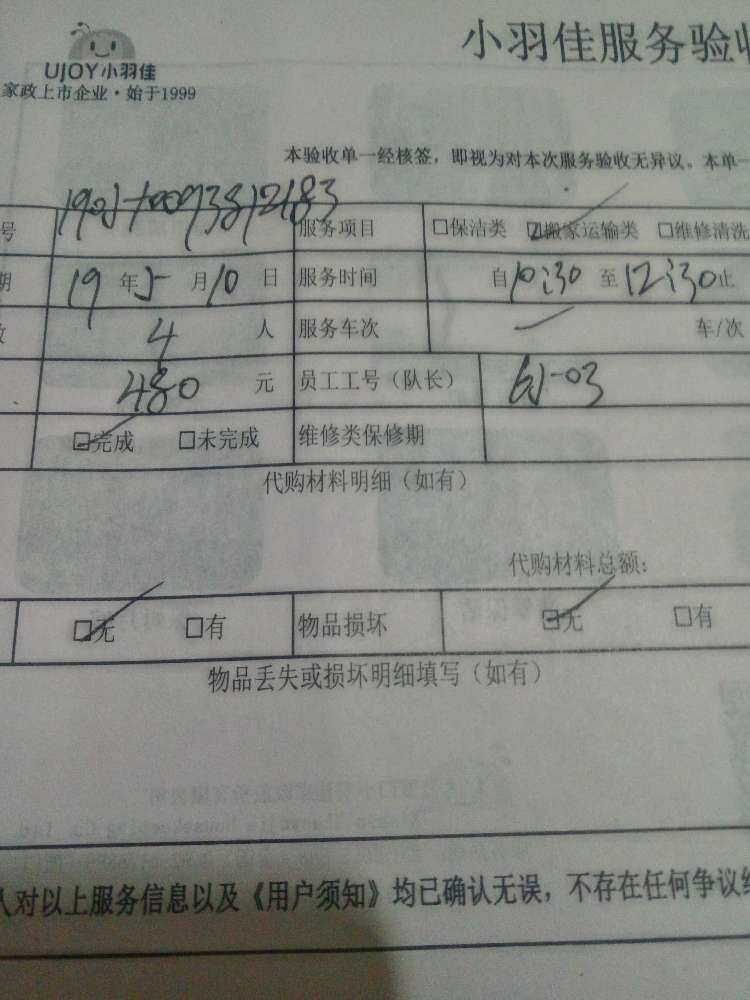 小羽佳服务验收
UJOY小羽佳
家政上市企业·始于1999
本验收单一经核签，即视为对本次服务验收无异议。本单一
号 服务项目 □保洁类 ☑搬家运输类 □维修清洗
期 19年5月10日 服务时间 自10:30至12:30止
数 4人 服务车次 车/次
480元 员工工号（队长）
☑完成 □未完成 维修类保修期
代购材料明细（如有）
代购材料总额：
☑无 □有 物品损坏 ☑无 □有
物品丢失或损坏明细填写（如有）
人对以上服务信息以及《用户须知》均已确认无误，不存在任何争议纠